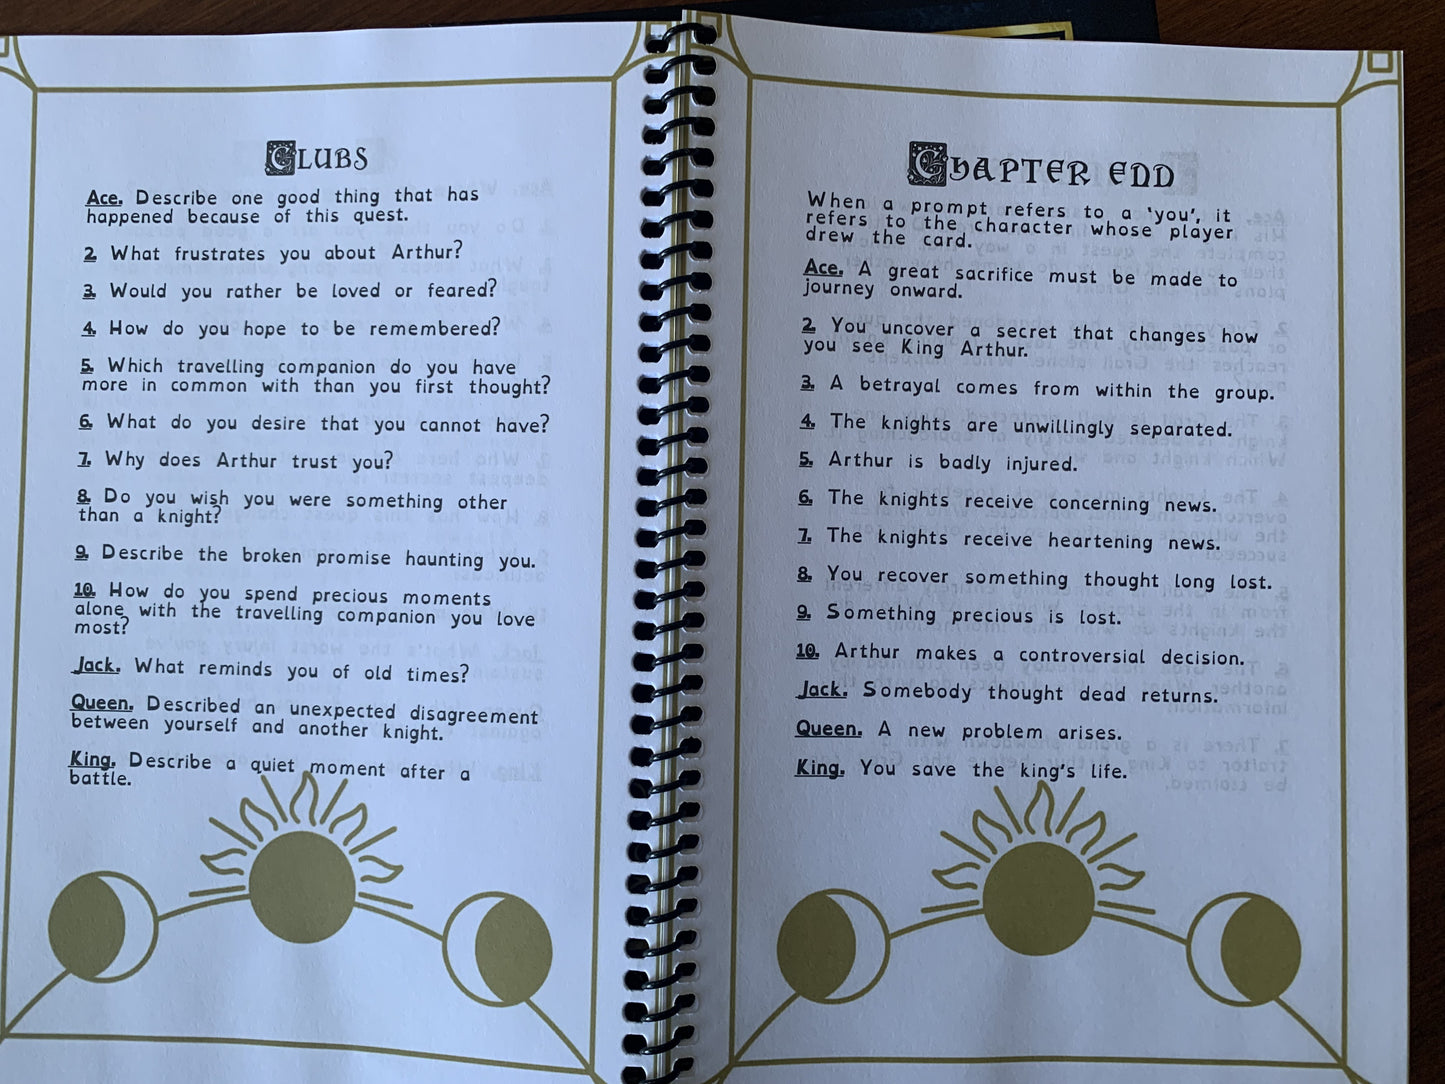 Clubs
Ace. Describe one good thing that has
happened because of this quest.
2. What frustrates you about Arthur?
3. Would you rather be loved or feared?
4. How do you hope to be remembered?
5. Which travelling companion do you have
more in common with than you first thought?
6. What do you desire that you cannot have?
7. Why does Arthur trust you?
8. Do you wish you were something other
than a knight?
9. Describe the broken promise haunting you.
10. How do you spend precious moments
alone with the travelling companion you love
most?
Jack. What reminds you of old times?
Queen. Described an unexpected disagreement
between yourself and another knight.
King. Describe a quiet moment after a
battle.
Chapter End
When a prompt refers to a 'you', it
refers to the character whose player
drew the card.
Ace. A great sacrifice must be made to
journey onward.
2. You uncover a secret that changes how
you see King Arthur.
3. A betrayal comes from within the group.
4. The knights are unwillingly separated.
5. Arthur is badly injured.
6. The knights receive concerning news.
7. The knights receive heartening news.
8. You recover something thought long lost.
9. Something precious is lost.
10. Arthur makes a controversial decision.
Jack. Somebody thought dead returns.
Queen. A new problem arises.
King. You save the king's life.